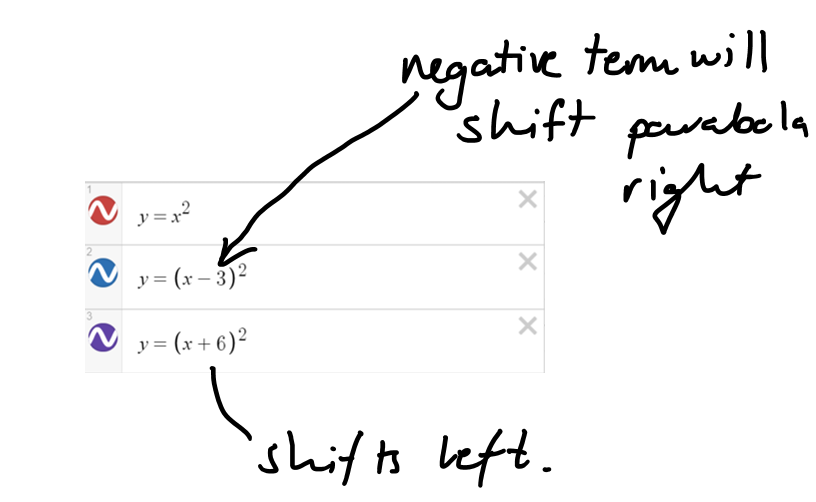 negative term will
shift parabola
right
1
y = x²
2
y = (x − 3)²
3
y = (x + 6)²
shifts left.